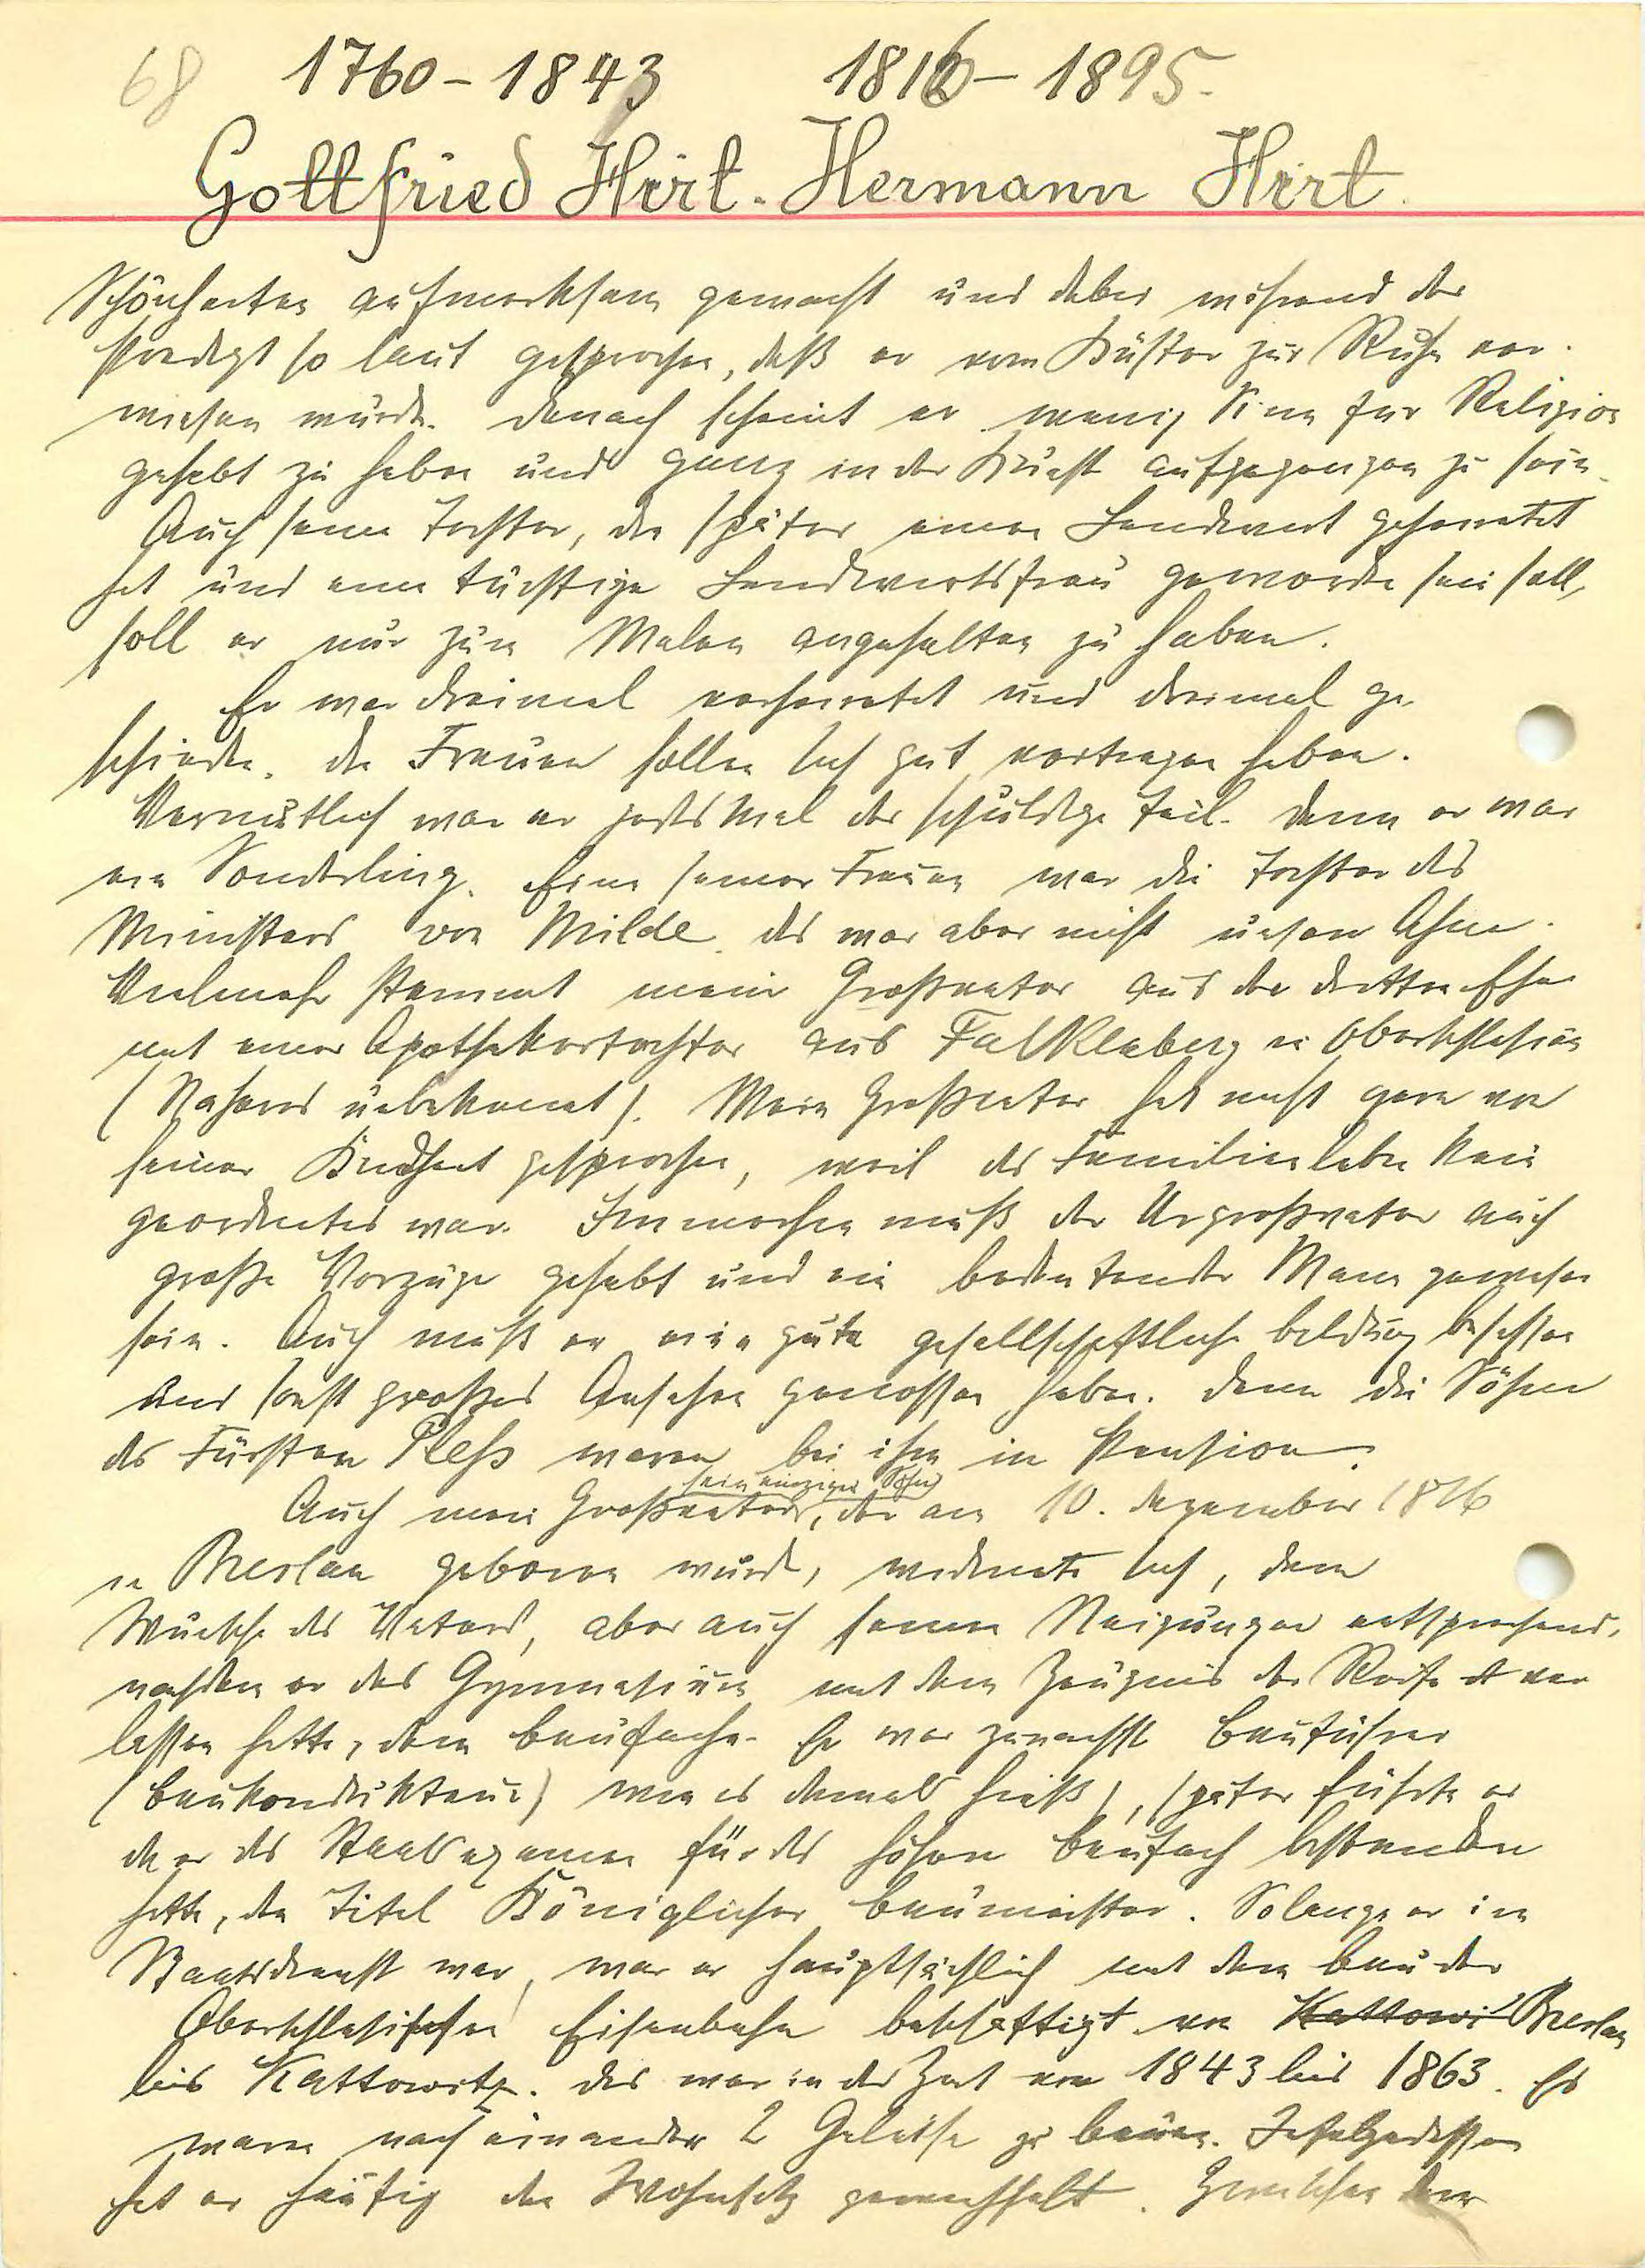 68 1760-1843 1816-1895.
Gottfried Hirt. Hermann Hirt.
Schönheiten aufmerksam gemacht und dabei während der
Predigt so laut gesprochen, daß er vom Küster zur Ruhe ver-
wiesen wurde. Danach scheint er wenig Sinn für Religion
gehabt zu haben und ganz in der Kunst aufgegangen zu sein.
Auch seine Tochter, die später einen Landwirt geheiratet
hat und eine tüchtige Landwirtsfrau geworden sein soll,
soll er nur zum Malen angehalten zu haben.
Er war dreimal verheiratet und dreimal ge-
schieden. Die Frauen sollen sich gut vertragen haben.
Vermutlich war er jedes Mal der schuldige Teil. Denn er war
ein Sonderling. Eine seiner Frauen war die Tochter des
Ministers von Milde. Das war aber nicht unsere Ahne.
Vielmehr stammt mein Großvater aus der dritten Ehe
mit einer Apothekertochter aus Falkenberg in Oberschlesien
(Näheres unbekannt). Mein Großvater hat nicht gern von
seiner Kindheit gesprochen, weil das Familienleben kein
geordnetes war. Immerhin muß der Urgroßvater auch
große Vorzüge gehabt und ein bedeutender Mann gewesen
sein. Auch muß er eine gute gesellschaftliche Bildung besessen
und sonst großes Ansehen genossen haben. Denn die Söhne
des Fürsten Pleß waren bei ihm in Pension.
sein einziger Sohn
Auch mein Großvater, der am 10. Dezember 1816
in Breslau geboren wurde, widmete sich, dem
Wunsche des Vaters, aber auch seinen Neigungen entsprechend,
nachdem er das Gymnasium mit dem Zeugnis der Reife ver
lassen hatte, dem Baufache. Er war zunächst Bauführer
(Baukondukteur) wie es damals hieß), später führte er
da er das Staatsexamen für das höhere Baufach bestanden
hatte, den Titel Königlicher Baumeister. Solange er im
Staatsdienst war, war er hauptsächlich mit dem Bau der
Oberschlesischen Eisenbahn beschäftigt von Kattowi Breslau
bis Kattowitz. Das war in der Zeit von 1843 bis 1863. Es
waren nach einander 2 Geleise zu bauen. Infolgedessen
hat er häufig den Wohnsitz gewechselt. Zwischen dem